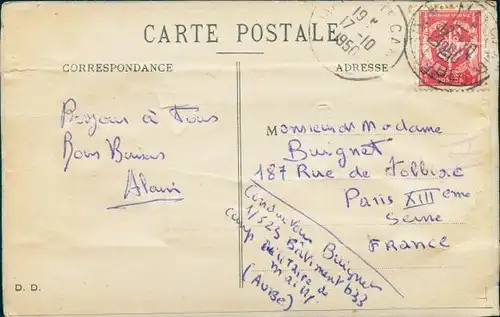 CARTE POSTALE
CORRESPONDANCE
ADRESSE
19
17-10
1950
Bonjour à Tous
Bons Baisers
Alain
Monsieur Madame
Buignet
187 Rue de Tolbiac
Paris XIIIeme
Seine
France
Conducteur Buignet
1/525 Bâtiment 633
camp militaire de
mailly
(Aube)
D. D.